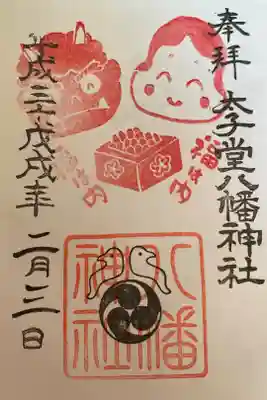 奉拝
太子堂八幡神社
福は内
八幡
神社
平成三十戊戌年
二月三日